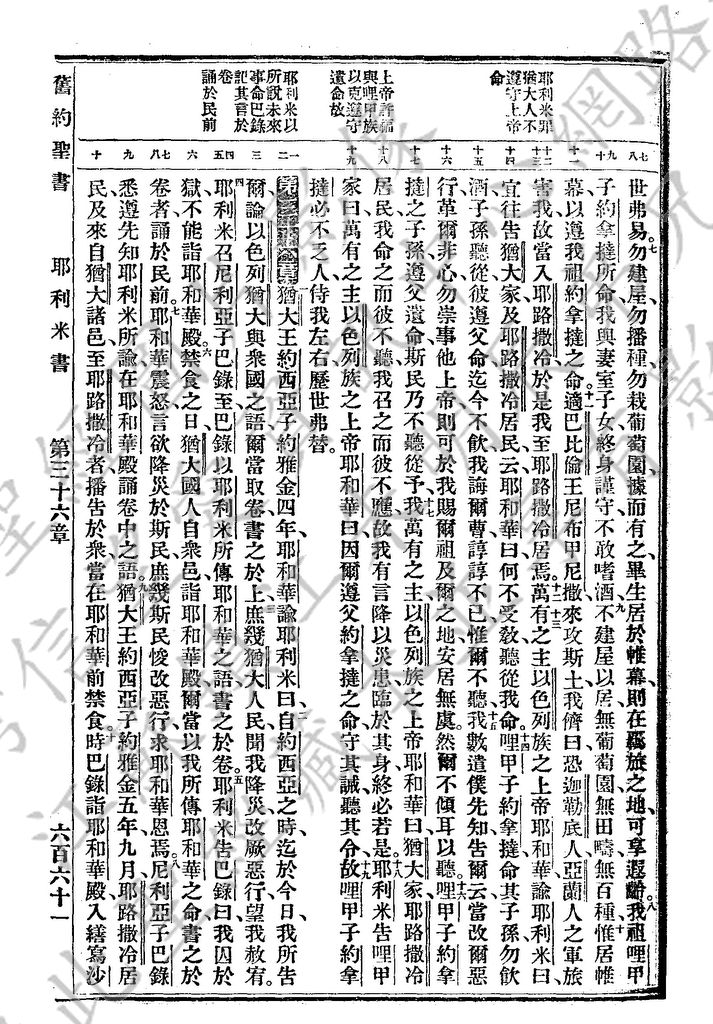 耶利米罪
猶大人不
遵守上帝
命
上帝許福
與哩甲族
以克遵守
遺命故
耶利米以
所說未來
事命巴錄
記其言於
卷
誦於民前
七八
九十
十一
十二十三
十四
十五
十六
十七
十八
十九
一二
三
四五
六
七八
九
十
世弗易勿建屋勿播種勿栽葡萄園據而有之畢生居於帷幕則在羈旅之地可享遐齡我祖哩甲
子約拿撻所命我與妻室子女終身謹守不敢嗜酒不建屋以居無葡萄園無田疇無百種惟居帷
幕以遵我祖約拿撻之命適巴比倫王尼布甲尼撒來攻斯土我儕曰恐迦勒底人亞蘭人之軍族
害我故當入耶路撒冷於是我至耶路撒冷居焉萬有之主以色列族之上帝耶和華諭耶利米曰
宜往告猶大家及耶路撒冷居民云耶和華曰何不受敎聽從我命哩甲子約拿撻命其子孫勿飲
酒子孫聽從彼遵父命迄今不飲我誨爾曹諄諄不已惟爾不聽我數遣僕先知告爾云當改爾惡
行革爾非心勿崇事他上帝則可於我賜爾祖及爾之地安居無虞然爾不傾耳以聽哩甲子約拿
撻之子孫遵父遺命斯民乃不聽從予我萬有之主以色列族之上帝耶和華曰猶大家耶路撒冷
居民我命之而彼不聽我召之而彼不應故我有言降以災患臨於其身終必若是耶利米告哩甲
家曰萬有之主以色列族之上帝耶和華曰因爾遵父約拿撻之命守其誡聽其令故哩甲子約拿
撻必不乏人侍我左右歷世弗替
第三十六章猶大王約西亞子約雅金四年耶和華諭耶利米曰自約西亞之時迄於今日我所告
爾論以色列猶大與衆國之語爾當取卷書之於上庶幾猶大人民聞我降災改厥惡行望我赦宥
耶利米召尼利亞子巴錄至巴錄以耶利米所傳耶和華之語書之於卷耶利米告巴錄曰我囚於
獄不能詣耶和華殿禁食之日猶大國人自衆邑詣耶和華殿爾當以我所傳耶和華之命書之於
卷者誦於民前耶和華震怒言欲降災於斯民庶幾斯民悛改惡行求耶和華恩焉尼利亞子巴錄
悉遵先知耶利米所諭在耶和華殿誦卷中之語猶大王約西亞子約雅金五年九月耶路撒冷居
民及來自猶大諸邑至耶路撒冷者播告於衆當在耶和華前禁食時巴錄詣耶和華殿入繕寫沙
舊約聖書 耶利米書 第三十六章 六百六十一